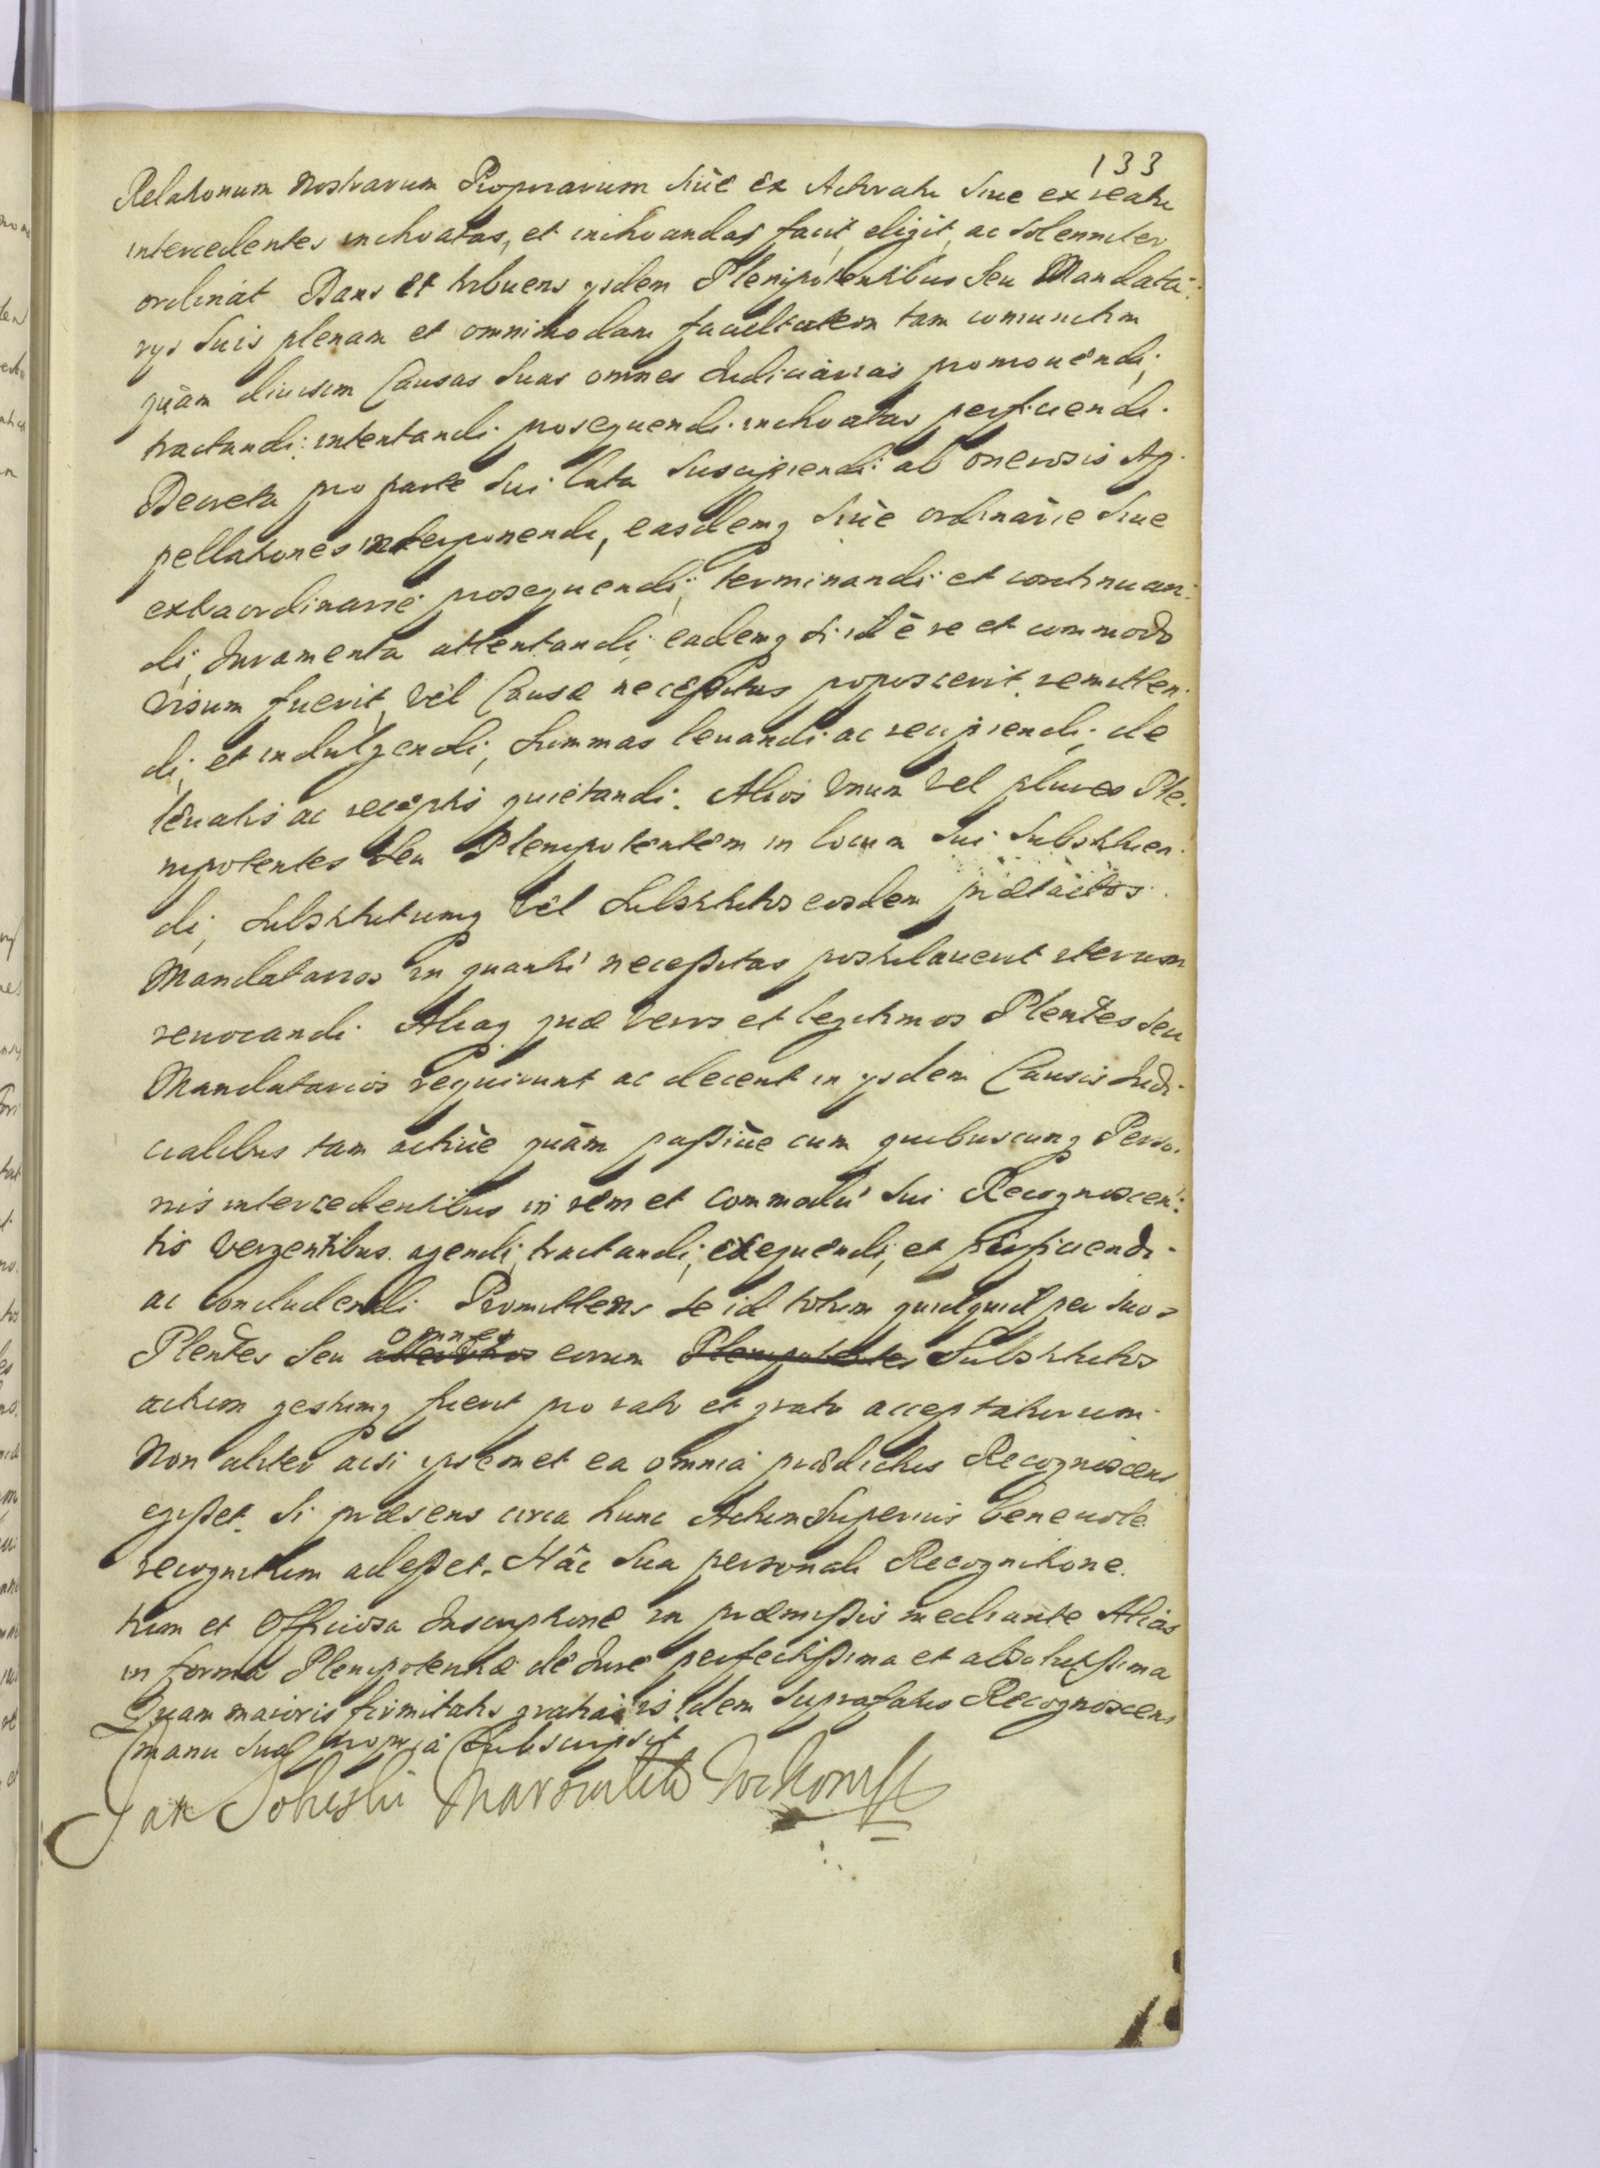 133
Relationum Nostrarum Propriarum siue ex Actoratu siue ex reatu
intercedentes inchoatas, et inchoandas facit, eligit, ac solenniter
ordinat Dans et tribuens ysdem Plenipotentibus seu Mandata:
rys suis plenam et omnimodam facultatem tam coniunctim
quàm diuisim Causas suas omnes Judiciarias promouendi,
tractandi: intentandi prosequendi. inchoatas perficiendi.
Decreta pro parte sui lata suscipiendi: ab onerosis Ap:
pellationes interponendi, easdemq siùe ordinàrie siue
extraordinarie prosequendi, terminandi et continuan:
di, Juramenta attentandi, eademq si id è re et commodo
visum fuerit, vèl Causæ neceßitas poposcerit remitten:
di, et indulgendi, summas leuandi ac recipiendi, de
leuatis ac receptis quietandi. Alios vnum vel plures Ple:
nipotentes seu Plenipotentem in locum sui substituen:
di, substitutumq vèl substitutos eosdem prætactos
Mandatarios in quantũ neceßitas postulauerit iterum
reuocandi. Aliaq quæ veros et legitimos Plentes seu
Mandatarios requirunt ac decent in ysdem Causis Judi:
cialibus tam actiùe quàm paßiùe cum quibuscunq Perso:
nis intercedentibus in rem et commodũ sui Recognoscen:
tis vergentibus agendi, tractandi, exequendi, et perficiendi
ac concludendi Promittens se id totum quidquid per suos
Plentes seu omnes eorum Plenipotentes Substitutos
actum gestumq fuerit pro rato et grato acceptaturum
Non aliter acsi ipsemet ea omnia prædictus Recognoscens
egißet. Si præsens circa hunc Actum superius beneuole
recognitum adeßet. Hâc sua personali Recognitione
tum et Officiosa Inscriptione in præmißis mediante Alias
in forma Plenipotentiæ dè Jure perfectißima et absolutißima
Quam maioris firmitatis gratia is idem suprafatus Recognoscens
manu sua propria subscripsit
Jan Sobieski